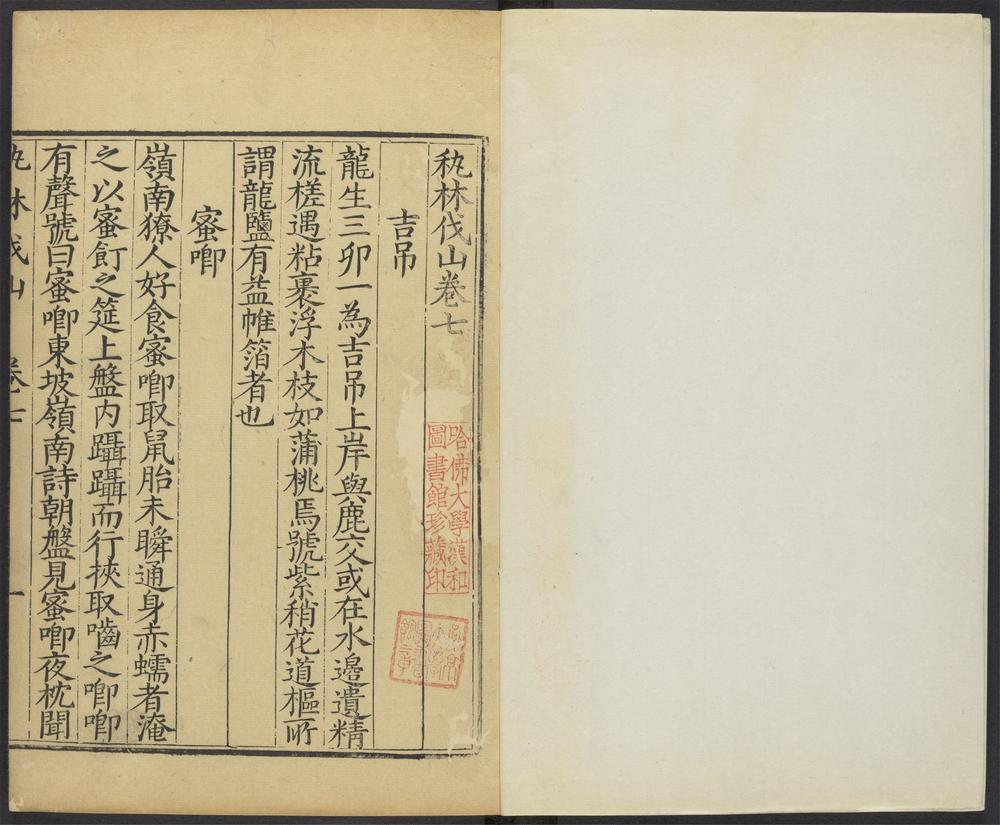 秇林伐山卷七
吉吊
龍生三卯一為吉吊上岸與鹿交或在水邊遺精
流槎遇粘裹浮木枝如蒲桃焉號紫稍花道樞所
謂龍鹽有益帷箔者也
蜜唧
嶺南獠人好食蜜唧取鼠胎未瞬通身赤蠕者淹
之以蜜飣之筵上盤內躡躡而行挾取嚙之唧唧
有聲號曰蜜唧東坡嶺南詩朝盤見蜜唧夜枕聞
秇林伐山 卷七 一
哈佛大學漢和
圖書館珍藏印